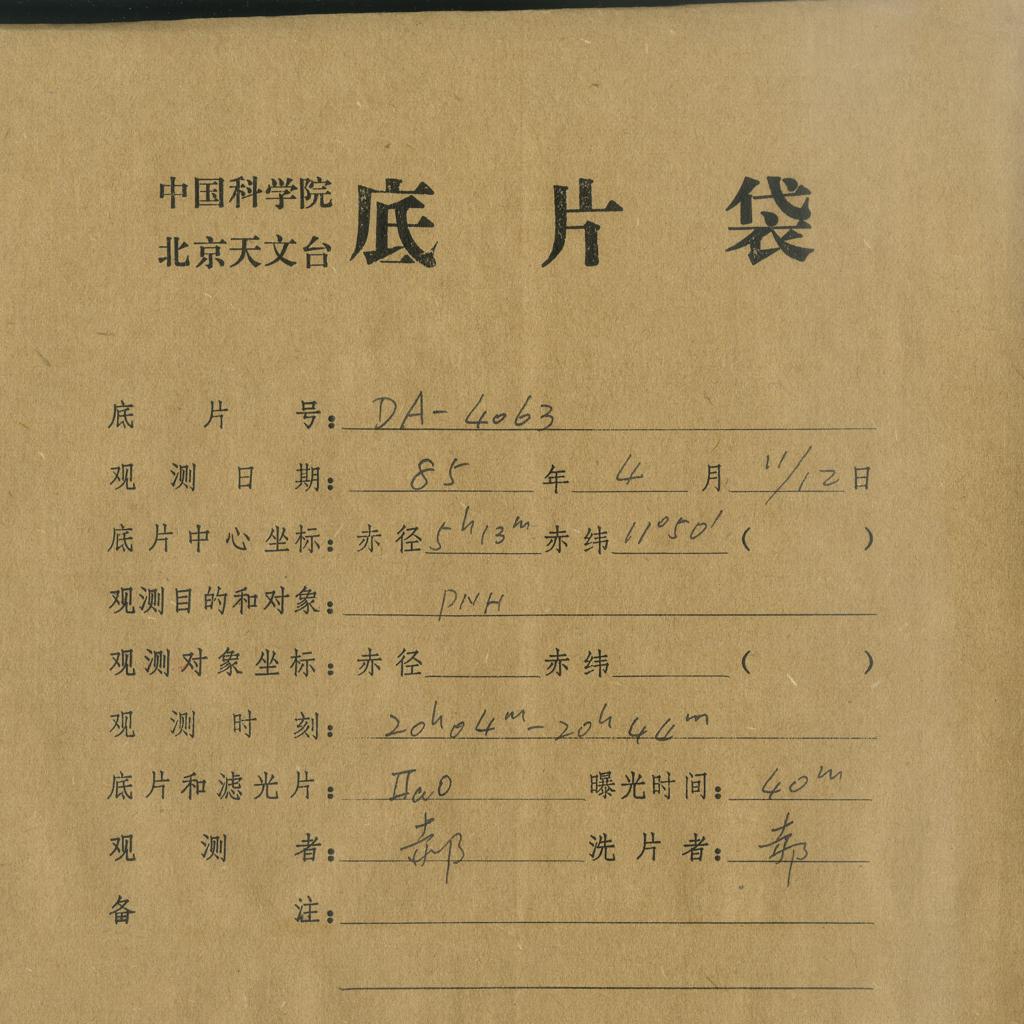 中国科学院
北京天文台
底片袋
底片号：DA-4063
观测日期：85年4月11/12日
底片中心坐标：赤径5h13m赤纬11°50′（ ）
观测目的和对象：PNH
观测对象坐标：赤径 赤纬 （ ）
观测时刻：20h04m-20h44m
底片和滤光片：IIaO 曝光时间：40m
观测者：郝 洗片者：郝
备注：